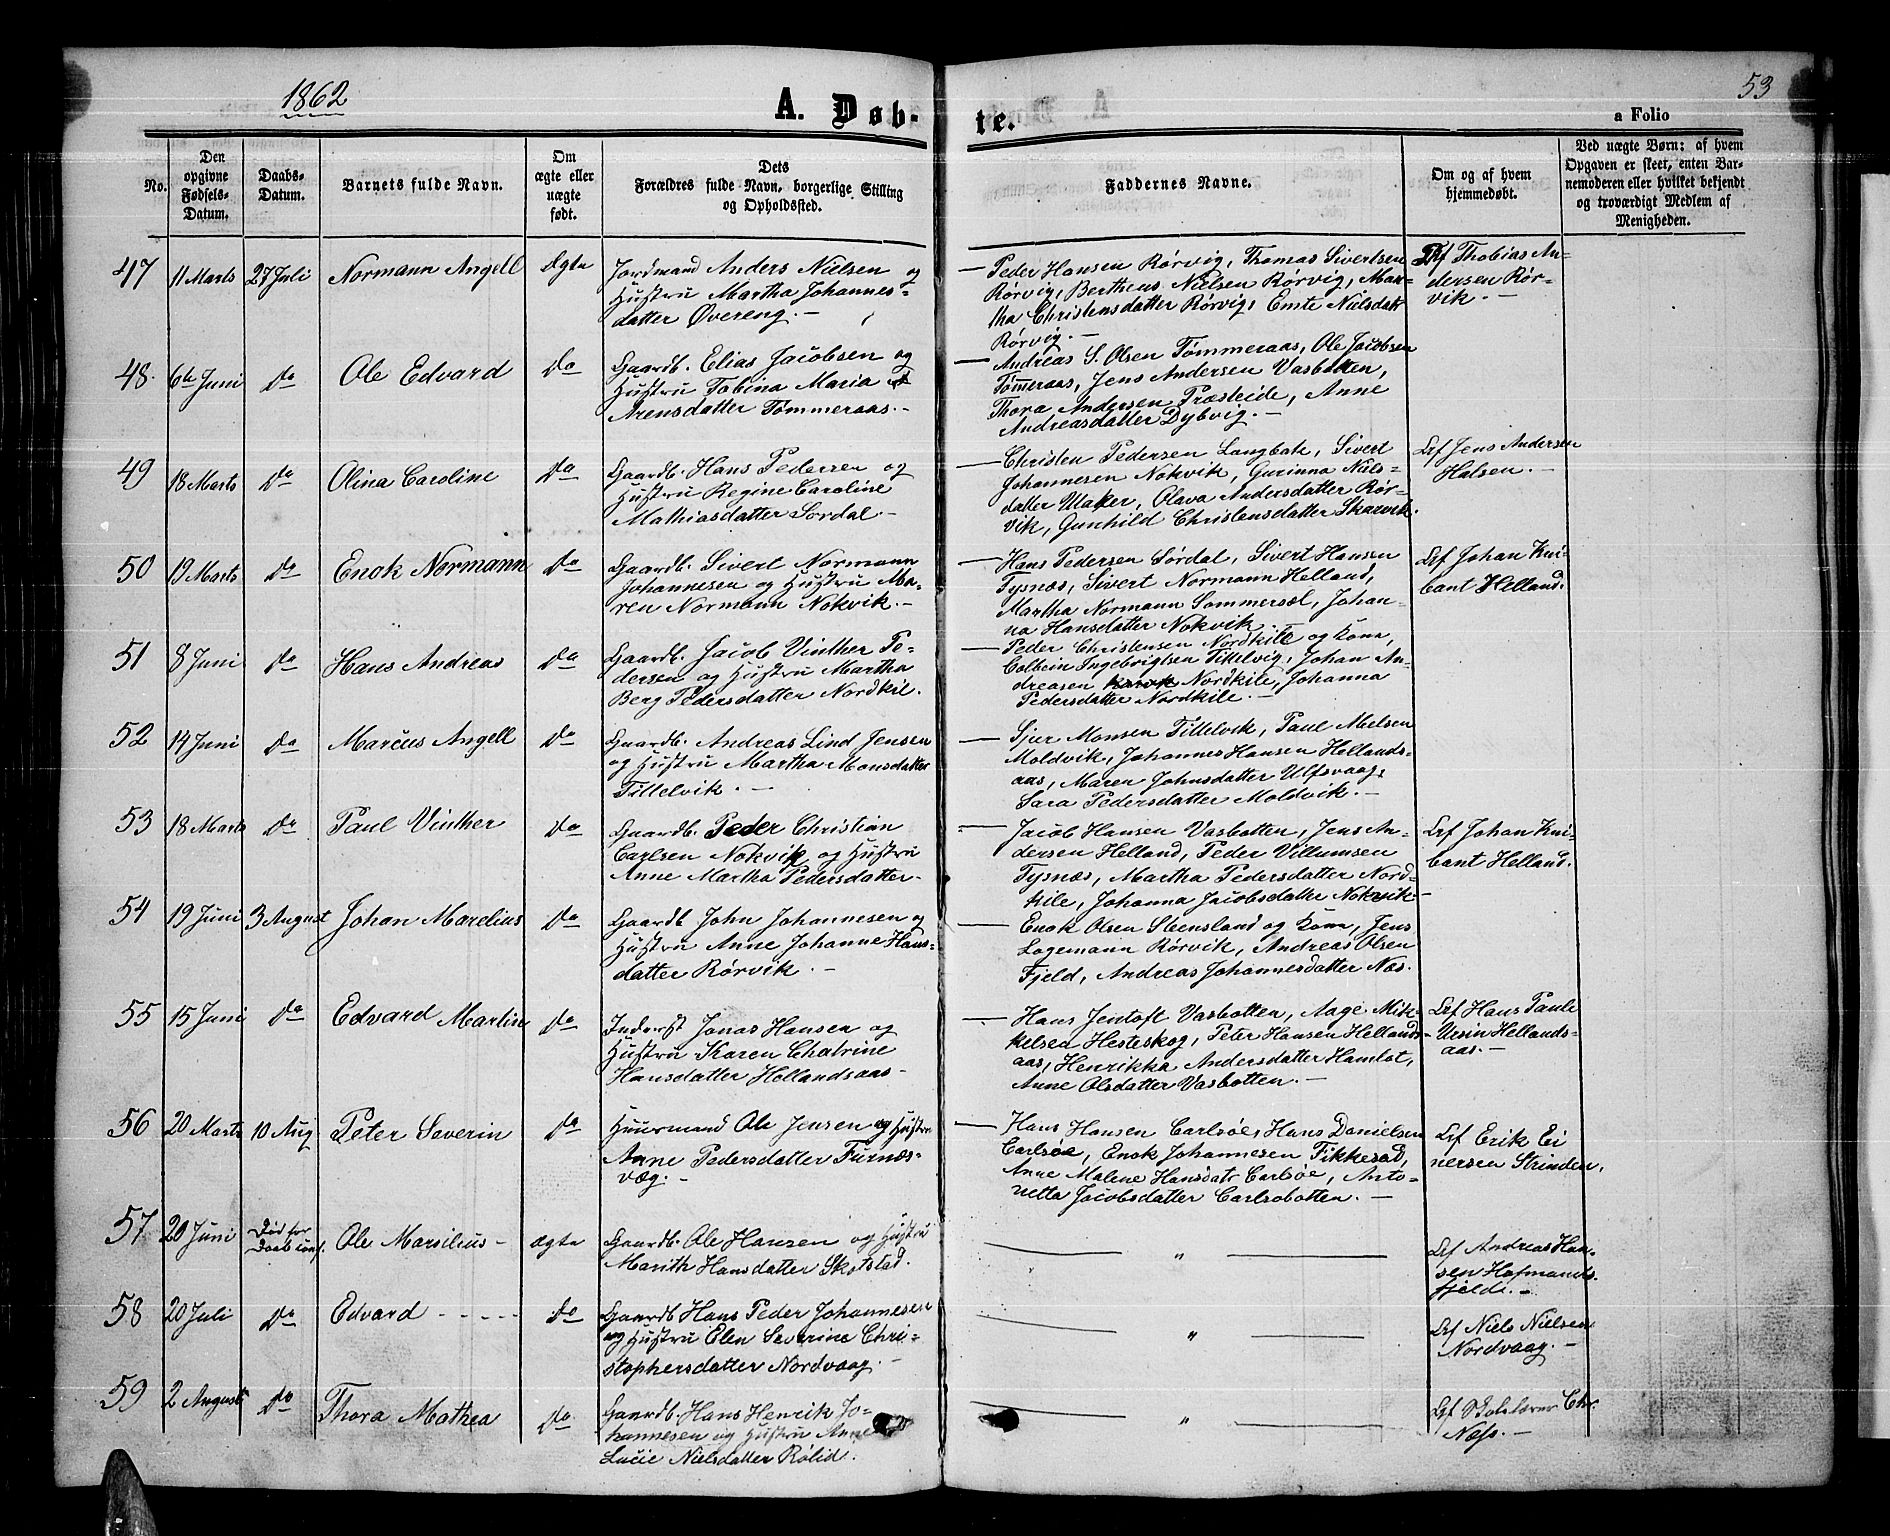 1862
A. Døb-
te.
53
a Folio
No.
Den
opgivne
Fødsels-
Datum.
Daabs-
Datum.
Barnets fulde Navn.
Om
ægte eller
uægte
født.
Dets
Forældres fulde Navn, borgerlige Stilling
og Opholdssted.
Faddernes Navne.
Om og af hvem
hjemmedøbt.
Ved uægte Børn: af hvem
Opgaven er skeet, enten Bar-
nemoderen eller hvilket bekjendt
og troværdigt Medlem af
Menigheden.
47 11 Marts 27 Juli Normann Angell Ægte
Jordmand Anders Nielsen og
Hustru Martha Johannes-
datter Øvereng.
Peder Hansen Rørvig, Thomas Sivertsen
Rørvig, Bertheus Nielsen Rørvig, Mar-
tha Christensdatter Rørvig, Emte Nielsdatr
Rørvig.
Af Thobias An-
dersen Rør-
vik.
48. 6te Juni Do Ole Edvard Do
Gaardb. Elias Jacobsen og
Hustru Tobina Maria
Arensdatter Tømmeraas.
Andreas S. Olsen Tømmeraas, Ole Jacobsen
Tømmeraas, Jens Andersen Vasbotten,
Thora Andersen Præsteide, Anne
Andreasdatter Dybvig.
49 18 Marts Do Olina Caroline Do
Gaardb. Hans Pedersen og
Hustru Regine Caroline
Mathiasdatter Sørdal.
Christen Pedersen Langbak, Sivert
Johannesen Nokvik, Gurinna Niels-
datter Maker, Olava Andersdatter Rør-
vik, Gunhild Christensdatter Skarvik.
Af Jens Andersen
Halsen.
50 19 Marts Do Enok Normann Do
Gaardb. Sivert Normann
Johannesen og Hustru Ma-
ren Normann Nokvik.
Hans Pedersen Sørdal, Sivert Hansen
Tysnæs, Sivert Normann Helland,
Martha Normann Sommersæl, Johan-
na Hansdatter Nokvik.
Af Johan Kni-
bant Helland.
51 8 Juni Do Hans Andreas Do
Gaardb. Jacob Vinther Pe-
dersen og Hustru Martha
Berg Pedersdatter Nordkil.
Peder Christensen Nordkile og Kone,
Colbein Ingebrigtsen Tillelvig, Johan An-
dreasen Nordkile, Johanna
Pedersdatter Nordkile.
52 14 Juni Do Marcus Angell Do
Gaardb. Andreas Lind Jensen
og Hustru Martha Monsdatter
Tillelvik.
Sjer Monsen Tillelvik, Paul Nielsen
Moldvik, Johannes Hansen Hellands-
aas, Maren Johnsdatter Ulfsvaag,
Sara Pedersdatter Moldvik.
53 18 Marts Do Paul Vinther Do
Gaardb. Peder Christian
Carlsen Nokvik og Hustru
Anne Martha Pedersdatter
Jacob Hansen Vasbotten, Jens An-
dersen Helland, Peder Villumsen
Tysnæs, Martha Pedersdatter Nord-
kile, Johanna Jacobsdatter Nokvik.
Af Johan Kni-
bant Helland.
54 19 Juni 3 August Johan Marelius Do
Gaardb John Johannesen og
Hustru Anne Johanne Hans-
datter Rørvik.
Enok Olsen Steensland og Kone, Jens
Logemann Rørvik, Andreas Olsen
Fjeld, Andreas Johannesdatter Næs.
55 15 Juni Do Edvard Martin Do
Inderst Jonas Hansen og
Hustru Karen Chatrine
Hansdatter Hellandsaas
Hans Jentoft Vasbotten, Aage Mik-
kelsen Hesteskog, Peter Hansen Hellands-
aas, Henrikka Andersdatter Hamlot,
Anne Olsdatter Vasbotten.
Af Hans Paule
Ursin Hellands-
aas.
56 20 Marts 10 Aug Peter Severin Do
Huusmand Ole Jensen og Hustru
Anne Pedersdatter Furnæs-
væg.
Hans Hansen Carlsøe, Hans Danielsen
Carlsøe, Enok Johannesen Fikkesad,
Anne Malene Hansdatr Carlsøe, Anto-
netta Jacobsdatter Carlsobotten.
Af Erik Ei
nersen Strinden,
57 20 Juni Død før
Daab conf. Ole Marsilius ægte
Gaardb. Ole Hansen og Hustru
Marith Hansdatter Skotstad.
"
Af Andreas Han-
sen Hofmands-
fjeld.
58 20 Juli Do Edvard Do
Gaardb Hans Peder Johannesen
og Hustru Elen Severine Chri-
stophersdatter Nordvaag.
"
Af Niels Nielsen
Nordvaag.
59 2 August Do Thora Mathea Do
Gaardb. Hans Henrik Jo-
hannesen og Hustru Anne
Lucie Nielsdatter Rølid.
"
Af Skolelærer Chr.
Næss.